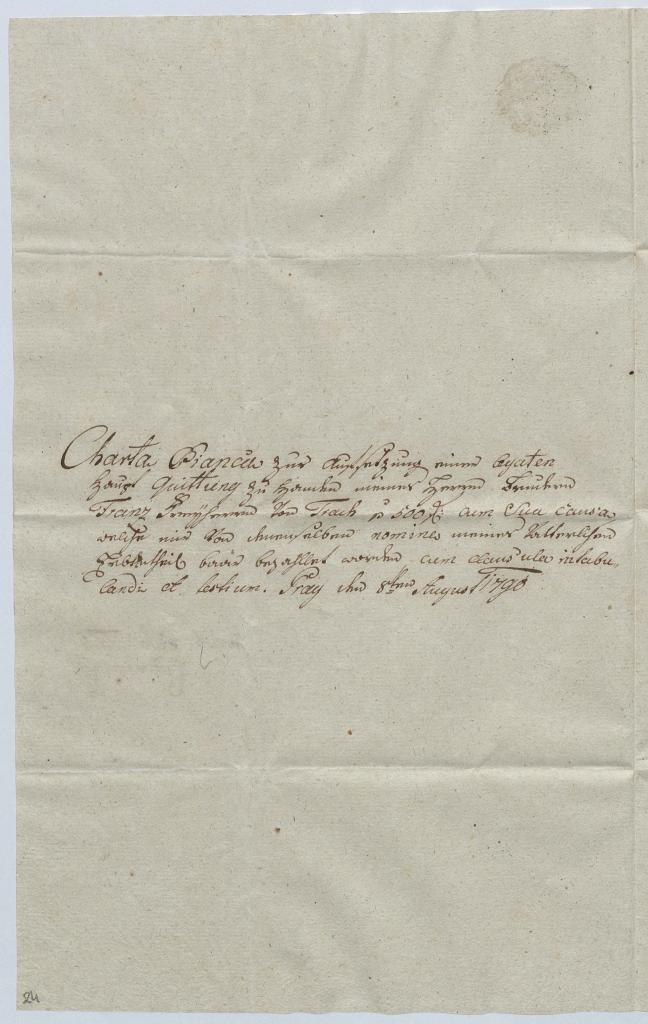 Charta Bianca zur Aufsetzung einer legalen
Haupt Quittung zu Handen meines Herrn Brudern
Franz Freyherrn von Trach p 500 f: cum Sua causa
welche mir von demselben nomine meines Vatterlichen
Erbtheils baar bezahlet worden cum clausula intabu„
landi et testium. Prag den 8ten August 1790
24